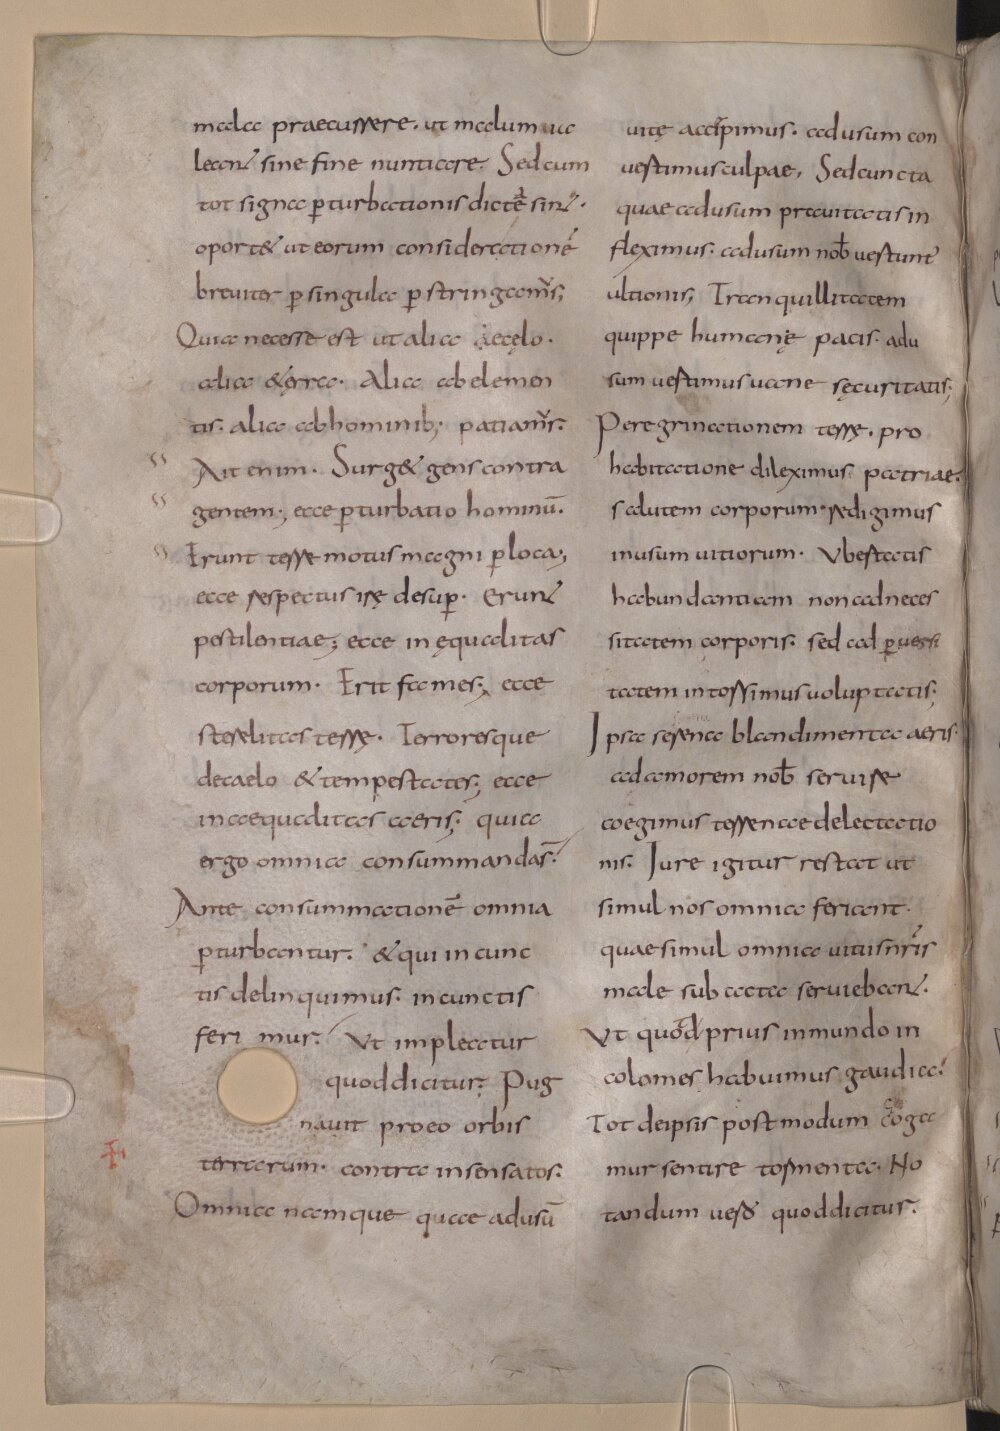 mala praecurrere. ut malum ua
leant sine fine nuntiare. Sed cum
tot signa pturbationis dictā sint.
oport& ut eorum considerationē
breuiter p singula pstringam̄s;
Quia necesse est ut alia a cęlo.
alia &erra. Alia ab elemen
tis. alia ab hominib; patiam̄s.
Ait enim. Surg& gens contra
gentem; ecce pturbatio hominū.
Erunt terre motus magni p loca;
ecce respectus irę desup. Erunt
pestilentiae; ecce inęqualitas
corporum. Erit fames; ecce
sterelitas terrę. Terroresque
de caelo & tempestates; ecce
inaequalitas aeris; quia
ergo omnia consummandas̄.
Ante consummationē omnia
pturbantur. & qui in cunc
tis delinquimus. in cunctis
feri mur. Ut impleatur
quod dicitur; Pug
nauit pro eo orbis
terrarum. contra insensatos.
Omnia namque quae ad usū
uitę accipimus. ad usum con
uertimus culpae. Sed cuncta
quae ad usum prauitatis in
fleximus. ad usum nob̄ uertunt
ultionis; Tranquillitatem
quippe humanę pacis. ad u
sum uertimus uane securitatis;
Peregrinationem terrę. pro
habitatione dileximus patriae.
salutem corporum redigimus
in usum uitiorum. Vbertatis
habundantiam non ad neces
sitatem corporis. sed ad puersi
tatem intorsimus uoluptatis;
Ipsa serena blandimenta aeris.
ad amorem nob̄ seruire
coegimus terrenae delectatio
nis. Iure igitur restat ut
simul nos omnia feriant.
quae simul omnia uitiis nr̄is
male subacta seruiebant.
Vt quod prius in mundo in
colomes habuimus gaudia.
Tot de ipsis post modum coga
mur sentire tormenta. No
tandum uero quod dicitur.